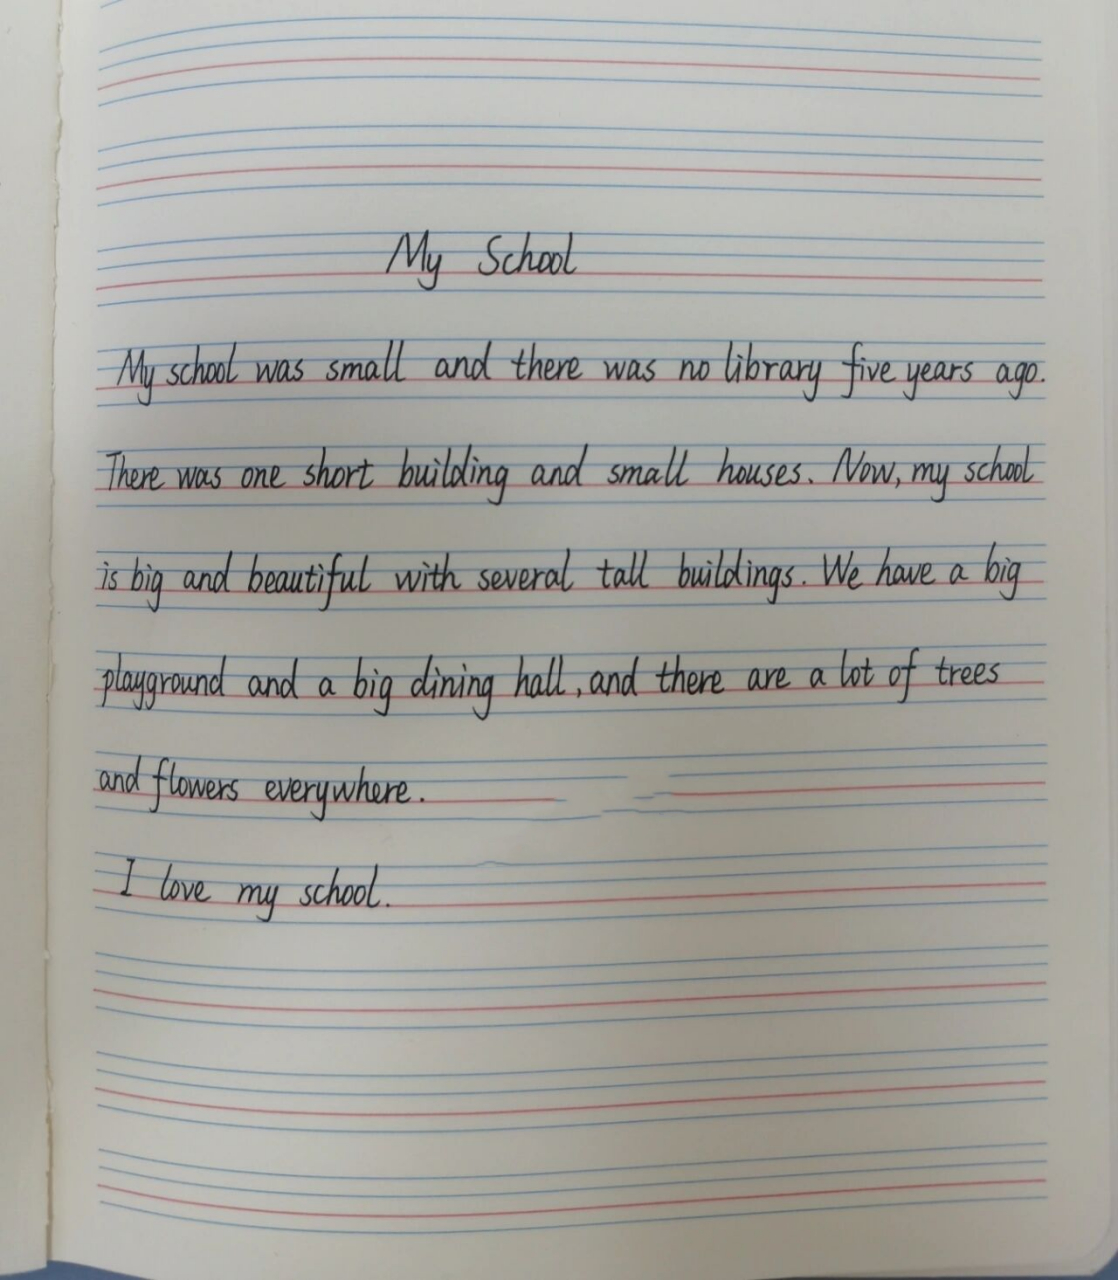 My School
My school was small and there was no library five years ago.
There was one short building and small houses. Now, my school
is big and beautiful with several tall buildings. We have a big
playground and a big dining hall, and there are a lot of trees
and flowers everywhere.
I love my school.